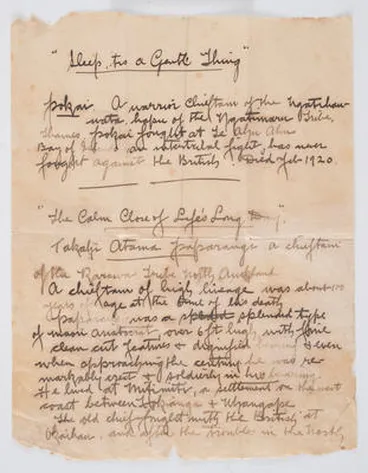 "Sleep, tis a Gentle Thing"
pokai. A warrior Chieftain of the Ngatihau
nata, hapu of the Ngatimaru Tribe,
Thames, pokai fought at Te Ahu Ahu
Bay of an intertribal fight, has never
fought against the British. Died Feb 1920.
"The Calm Close of Life's Long Day".
Takahi Atama paparangi a chieftain
of the Rarawa Tribe North Auckland
A chieftain of high lineage was about 100
years of age at the time of his death
was a splendid type
of maori aristocrat, over 6ft high, with fine
clean cut features & dignified bearing & even
when approaching the century he was re-
markably erect & soldierly in his bearing.
He lived at Mitimiti, a settlement on the west
coast between Hokianga & Whangape.
The old chief fought with the British at
and after the trouble in the North